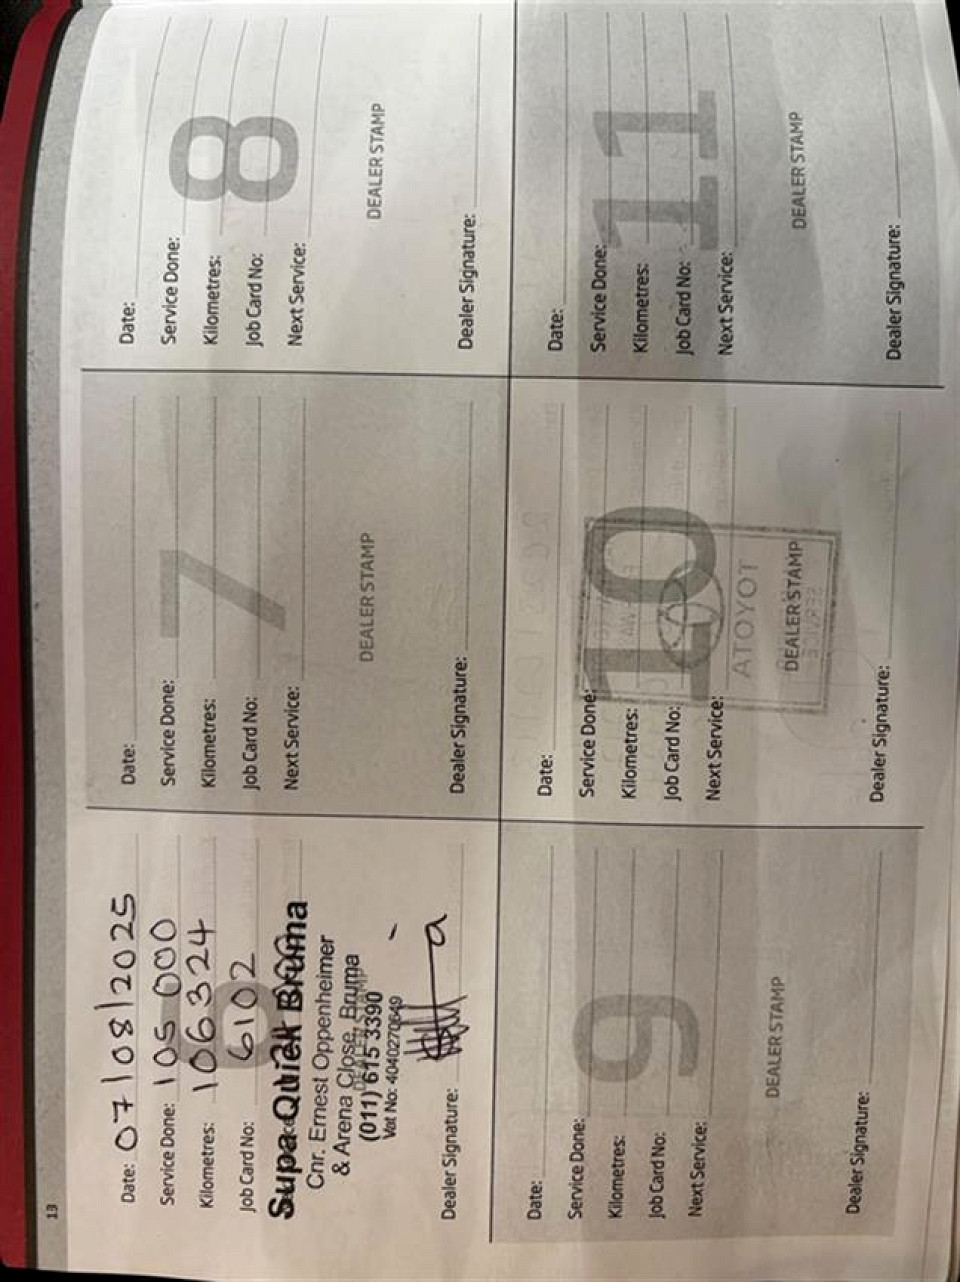 13
Date: 07/08/2025
Service Done: 105 000
Kilometres: 106324
Job Card No: 6102
Supa Quick Bruma
Cnr. Ernest Oppenheimer
& Arena Close, Bruma
(011) 615 3390
Vat No: 4040270649
DEALER STAMP
Dealer Signature:
6
Date:
Service Done:
Kilometres:
Job Card No:
Next Service:
7
DEALER STAMP
Dealer Signature:
Date:
Service Done:
Kilometres:
Job Card No:
Next Service:
8
DEALER STAMP
Dealer Signature:
Date:
Service Done:
Kilometres:
Job Card No:
Next Service:
9
DEALER STAMP
Dealer Signature:
Date:
Service Done:
Kilometres:
Job Card No:
Next Service:
10
TOYOTA
DEALER STAMP
Dealer Signature:
Date:
Service Done:
Kilometres:
Job Card No:
Next Service:
11
DEALER STAMP
Dealer Signature: